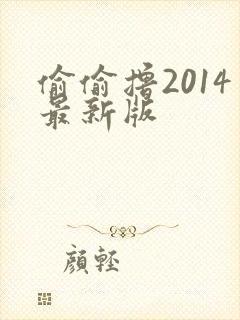 偷偷撸2014
最新版
顔輕